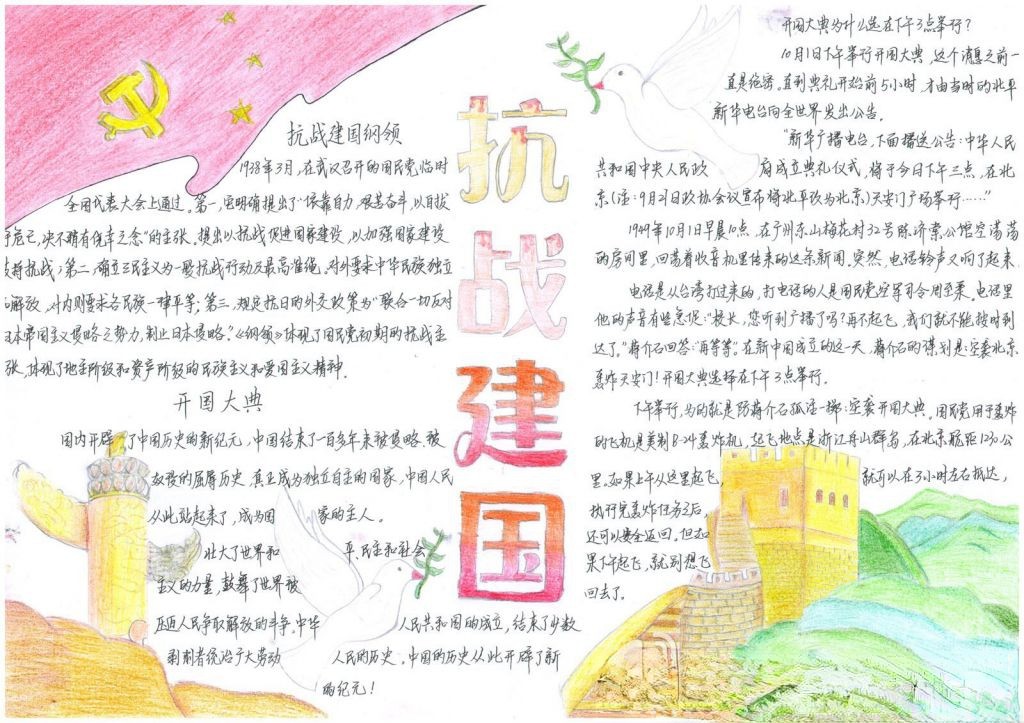 抗战建国
抗战建国纲领
1938年3月,在武汉召开的国民党临时
全国代表大会上通过。第一,它明确提出了“依靠自力,艰苦奋斗,以自拔
于危亡,决不稍有侥幸之念”的主张。提出以抗战促进国家建设,以加强国家建设
支持抗战;第二,确立三民主义为一般抗战行动及最高准绳。对外要求中华民族独立
解放,对内则要求各民族一律平等;第三,规定抗日的外交政策为“联合一切反对
日本帝国主义侵略之势力,制止日本侵略。”《纲领》体现了国民党初期的抗战主
张,体现了地主阶级和资产阶级的民族主义和爱国主义精神。
开国大典
国内开辟了中国历史的新纪元,中国结束了一百多年来被侵略、被
奴役的屈辱历史,真正成为独立自主的国家,中国人民
从此站起来了,成为国家的主人。
壮大了世界和平、民主和社会
主义的力量,鼓舞了世界被
压迫人民争取解放的斗争。中华人民共和国的成立,结束了少数
剥削者统治广大劳动人民的历史。中国的历史从此开辟了新
的纪元!
开国大典为什么选在下午3点举行?
10月1日下午举行开国大典,这个消息之前一
直是绝密。直到典礼开始前5小时,才由当时的北平
新华电台向全世界发出公告。
“新华广播电台,下面播送公告:中华人民
共和国中央人民政府成立典礼仪式,将于今日下午三点,在北
京(注:9月21日政协会议宣布将北平改为北京)天安门广场举行……”
1949年10月1日早晨10点,在广州东山梅花村32号陈济棠公馆空荡荡
的房间里,回荡着收音机里传来的这条新闻。突然,电话铃声又响了起来
电话是从台湾打过来的,打电话的人是国民党空军司令周至柔。电话里
他的声音有些急促:“校长,您听到广播了吗?再不起飞,我们就不能按时到
达了。”蒋介石回答:“再等等”。在新中国成立的这一天,蒋介石的谋划是:空袭北京
轰炸天安门!开国大典选择在下午3点举行。
下午举行,为的就是防蒋介石孤注一掷:空袭开国大典。国民党用于轰炸
的飞机是美制B-24轰炸机,起飞地点是浙江舟山群岛,在北京航距1230公
里。如果上午从这里起飞,就可以在3小时左右抵达,
执行完轰炸任务之后,
还可以安全返回。但如
果下午起飞,就别想飞
回去了。